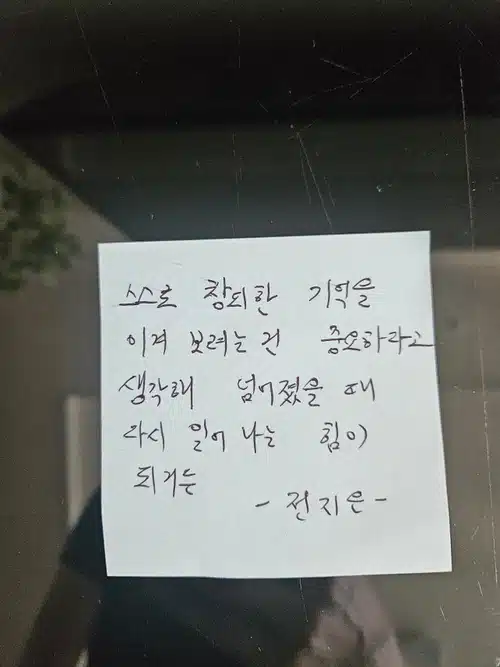 스스로 창피한 기억을
이겨 보려는 건 중요하라고
생각해 넘어졌을 때
다시 일어 나는 힘이
되거는
- 전지은 -